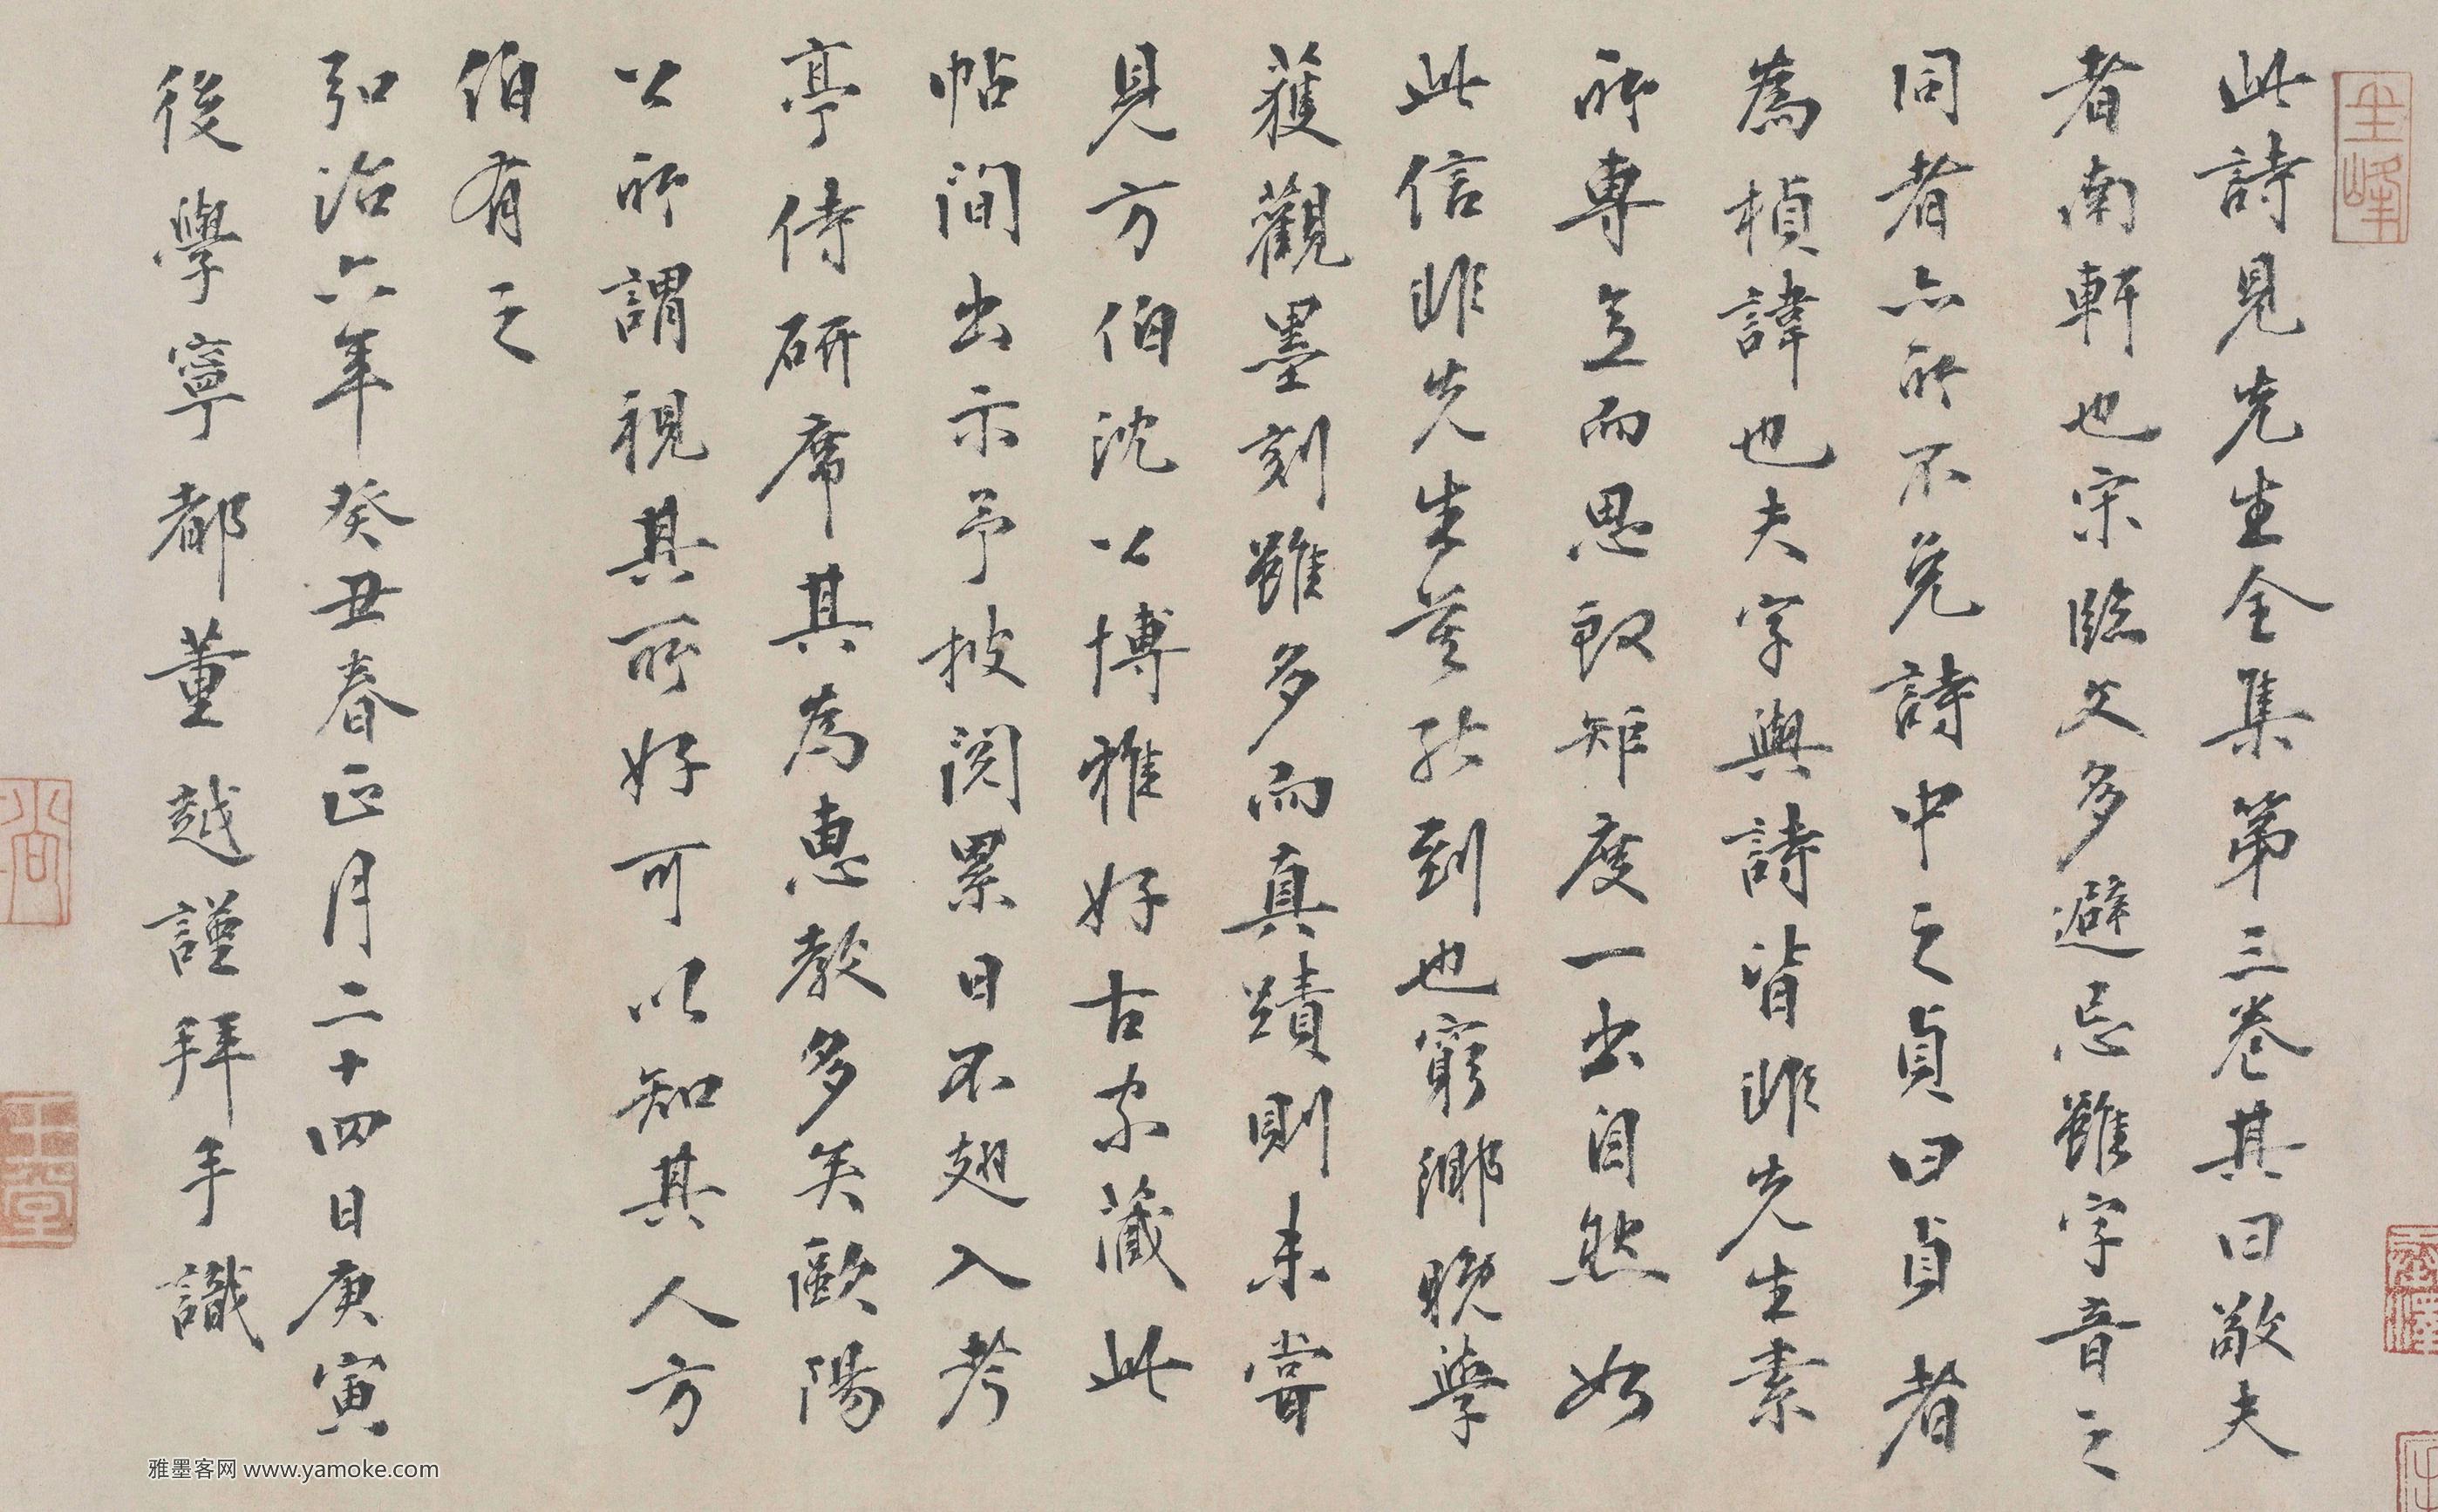 此詩見先生全集第三卷其曰敬夫
者南軒也宋臨文多避忌雖字音之
同者亦所不免詩中之貞曰貞者
為楨諱也夫字與詩皆非先生素
所專意而思致矩度一出自然如
此信非先生莫能到也窮鄉晚學
獲觀墨刻雖多而真蹟則未嘗
見方伯沈公博雅好古家藏此
帖間出示予披閱累日不翅入考
亭侍研席其為惠教多矣歐陽
公所謂視其所好可以知其人方
伯有之
弘治六年癸丑春正月二十四日庚寅
後學寧都董越謹拜手識
圭峰
尚
玉堂
雅墨客网 www.yamoke.com